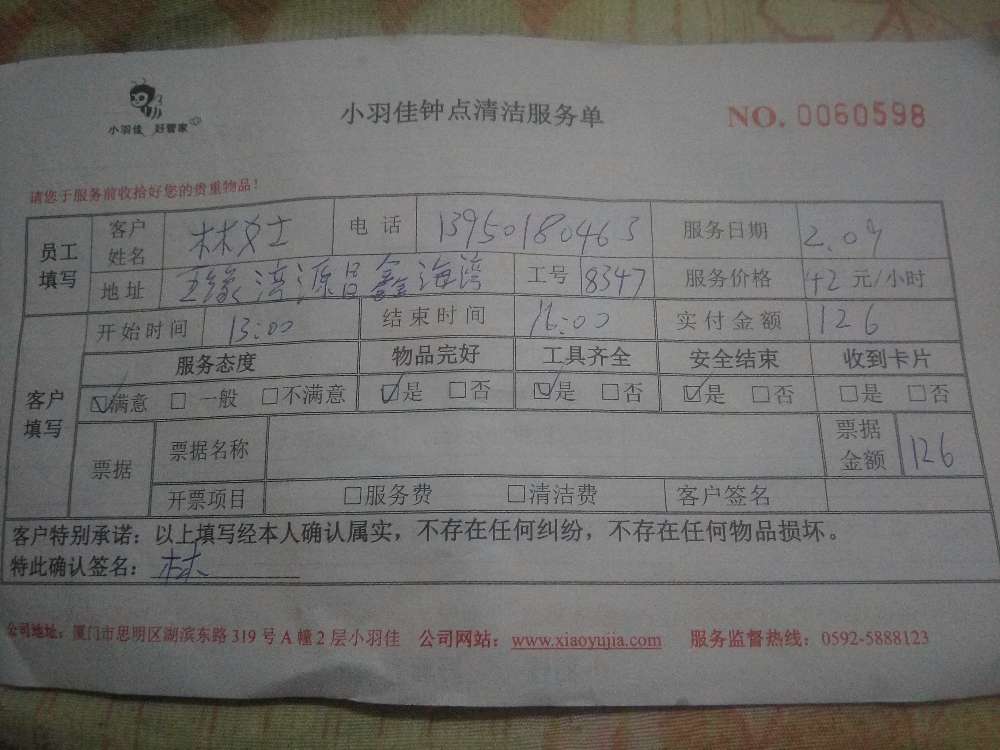 小羽佳 好管家
小羽佳钟点清洁服务单
NO. 0060598
请您于服务前收拾好您的贵重物品!
员工填写 客户姓名 林女士 电话 13950180463 服务日期 2.09
地址 源昌鑫海湾 工号 8347 服务价格 42元/小时
客户填写 开始时间 13:00 结束时间 16:00 实付金额 126
服务态度 物品完好 工具齐全 安全结束 收到卡片
☑满意 □一般 □不满意 ☑是 □否 ☑是 □否 ☑是 □否 □是 □否
票据 票据名称 票据金额 126
开票项目 □服务费 □清洁费 客户签名
客户特别承诺：以上填写经本人确认属实，不存在任何纠纷，不存在任何物品损坏。
特此确认签名：林
公司地址：厦门市思明区湖滨东路319号A幢2层小羽佳 公司网站：www.xiaoyujia.com 服务监督热线：0592-5888123